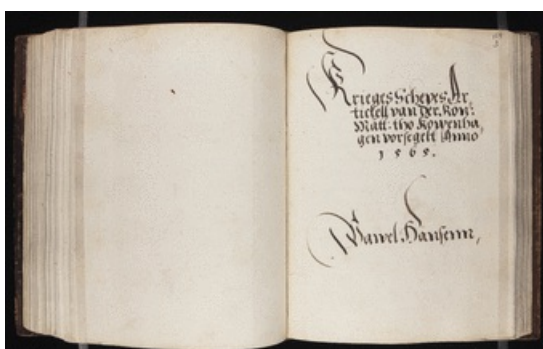 Krieges Schepes Ar,
tickell van der Kon:
Matt: tho Kopenha,
gen vorsegelt Anno
1565.
Pawel Hansenn,